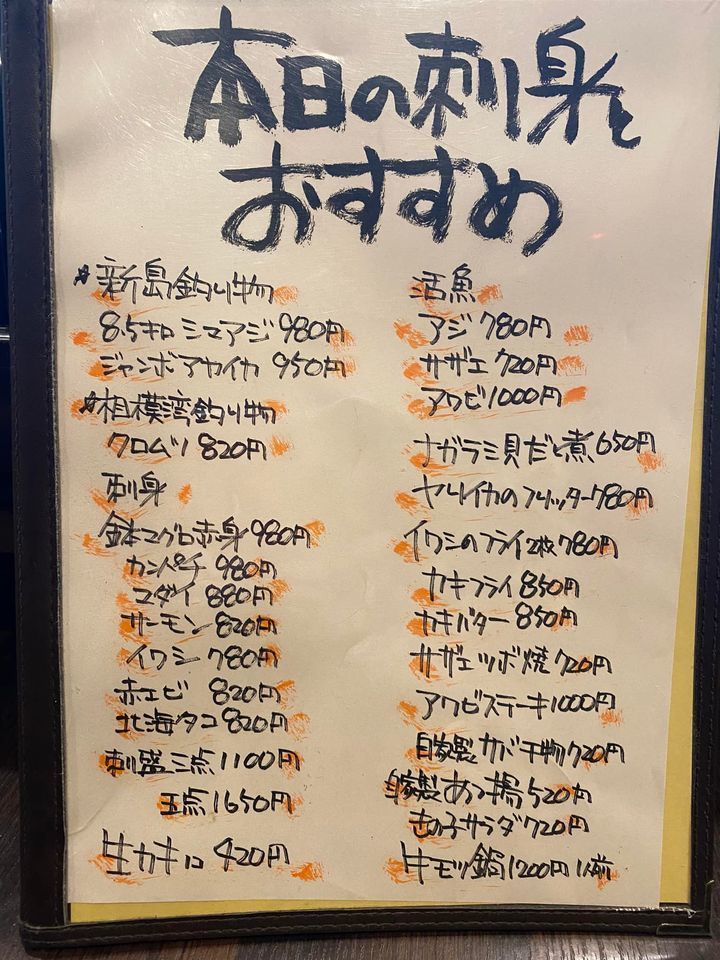 本日の刺身と
おすすめ
☆新島釣り物
8.5キロ シマアジ 980円
ジャンボアカイカ 950円
☆相模湾釣り物
クロムツ 820円
刺身
鉢マグロ赤身 980円
カンパチ 980円
マダイ 880円
サーモン 820円
イワシ 780円
赤エビ 820円
北海タコ 820円
刺盛三点 1100円
五点 1650円
生カキ1コ 420円
活魚
アジ 780円
サザエ 720円
アワビ 1000円
ナガラミ貝だし煮 650円
ヤリイカのフリッター 780円
イワシのフライ2枚 780円
カキフライ 850円
カキバター 850円
サザエツボ焼 720円
アワビステーキ 1000円
自家製サバ干物 720円
自家製あつ揚 520円
きの子サラダ 720円
牛モツ鍋 1200円 1人前